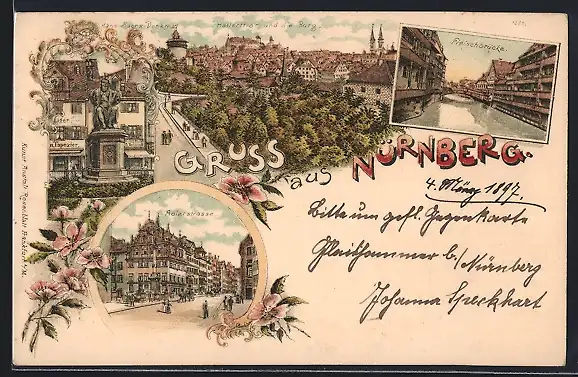 Hans Sachs-Denkmal
Hallerthor und die Burg.
Fleischbrücke.
GRUSS
aus
NÜRNBERG.
Adlerstrasse
4. März 1897.
Bitte um gefl. Gegenkarte
Glaishammer b./Nürnberg
Johanna Speckhart
Kunst Anstalt Rosenblatt Frankfurt a/M.